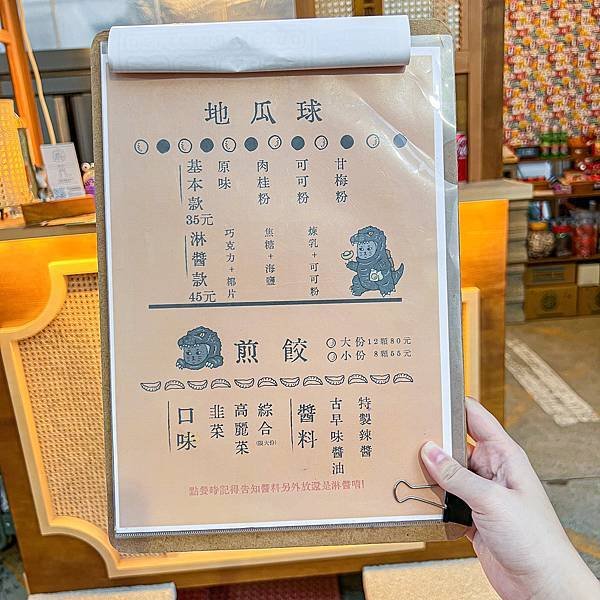 地瓜球
基本款
35元
原味
肉桂粉
可可粉
甘梅粉
淋醬款
45元
巧克力+椰片
焦糖+海鹽
煉乳+可可粉
煎餃
大份12顆80元
小份 8顆55元
口味
韭菜
高麗菜
綜合
(限大份)
醬料
古早味醬油
特製辣醬
點餐時記得告知醬料另外放還是淋醬唷!